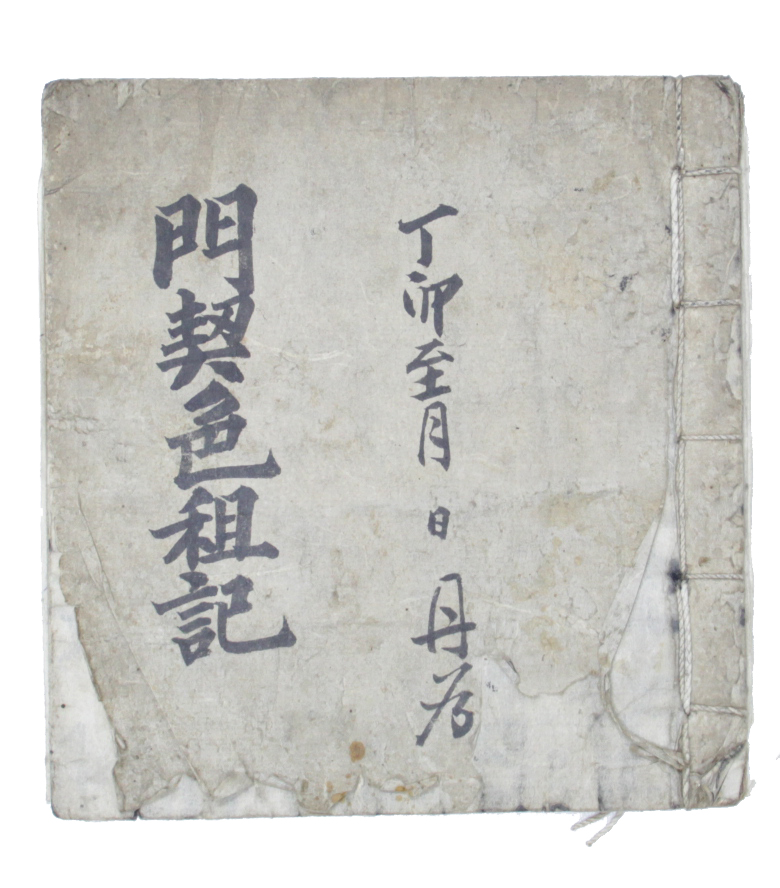 丁卯至月 日 丹谷
門契色租記